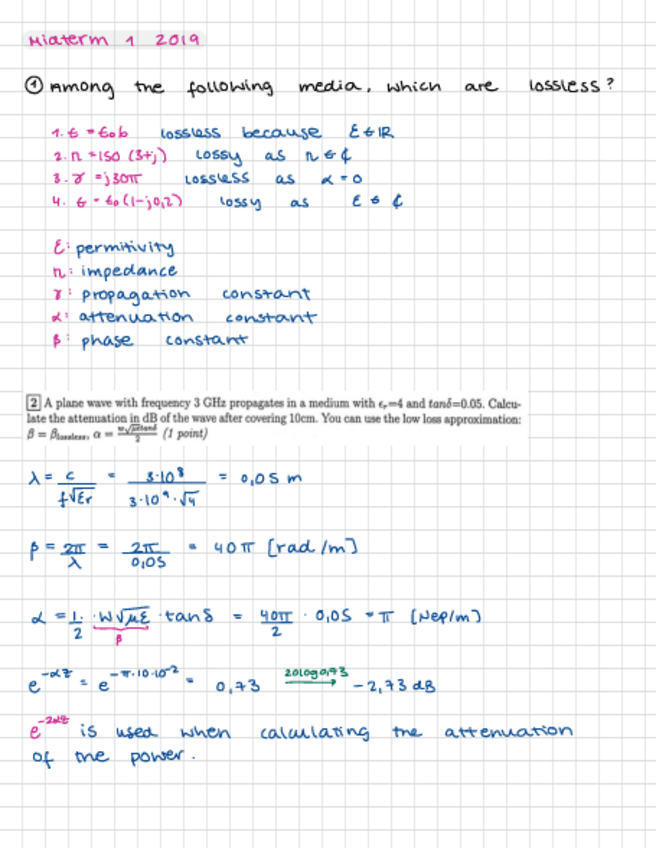 Midterm 1 2019
① Among the following media, which are lossless?
1. ε = ε₀6 lossless because ε ∈ ℝ
2. η = 150 (3+j) lossy as η ∈ ₵
3. γ = j30π lossless as α = 0
4. ε = ε₀(1-j0,2) lossy as ε ∈ ₵
ε: permitivity
η: impedance
γ: propagation constant
α: attenuation constant
β: phase constant
2 A plane wave with frequency 3 GHz propagates in a medium with εᵣ=4 and tanδ=0.05. Calcu-
late the attenuation in dB of the wave after covering 10cm. You can use the low loss approximation:
β = β_lossless, α = ω√με tanδ / 2 (1 point)
λ = c / f√εr = 3·10⁸ / 3·10⁹·√4 = 0,05 m
β = 2π / λ = 2π / 0,05 = 40π [rad/m]
α = 1/2 · w√με · tanδ = 40π/2 · 0,05 = π [Nep/m]
β
e^-αz = e^-π·10·10^-2 = 0,73 20log0,73 → -2,73 dB
e^-2αz is used when calculating the attenuation
of the power.